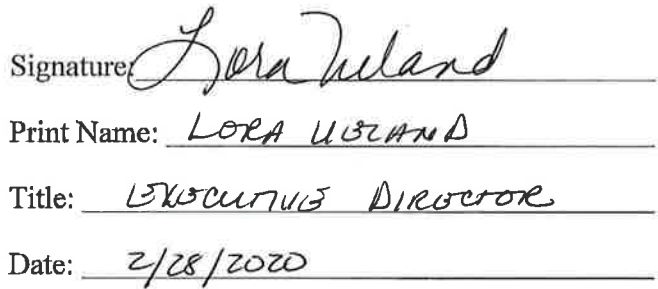 Signature: Lora Ueland
Print Name: LORA UELAND
Title: EXECUTIVE DIRECTOR
Date: 2/28/2020